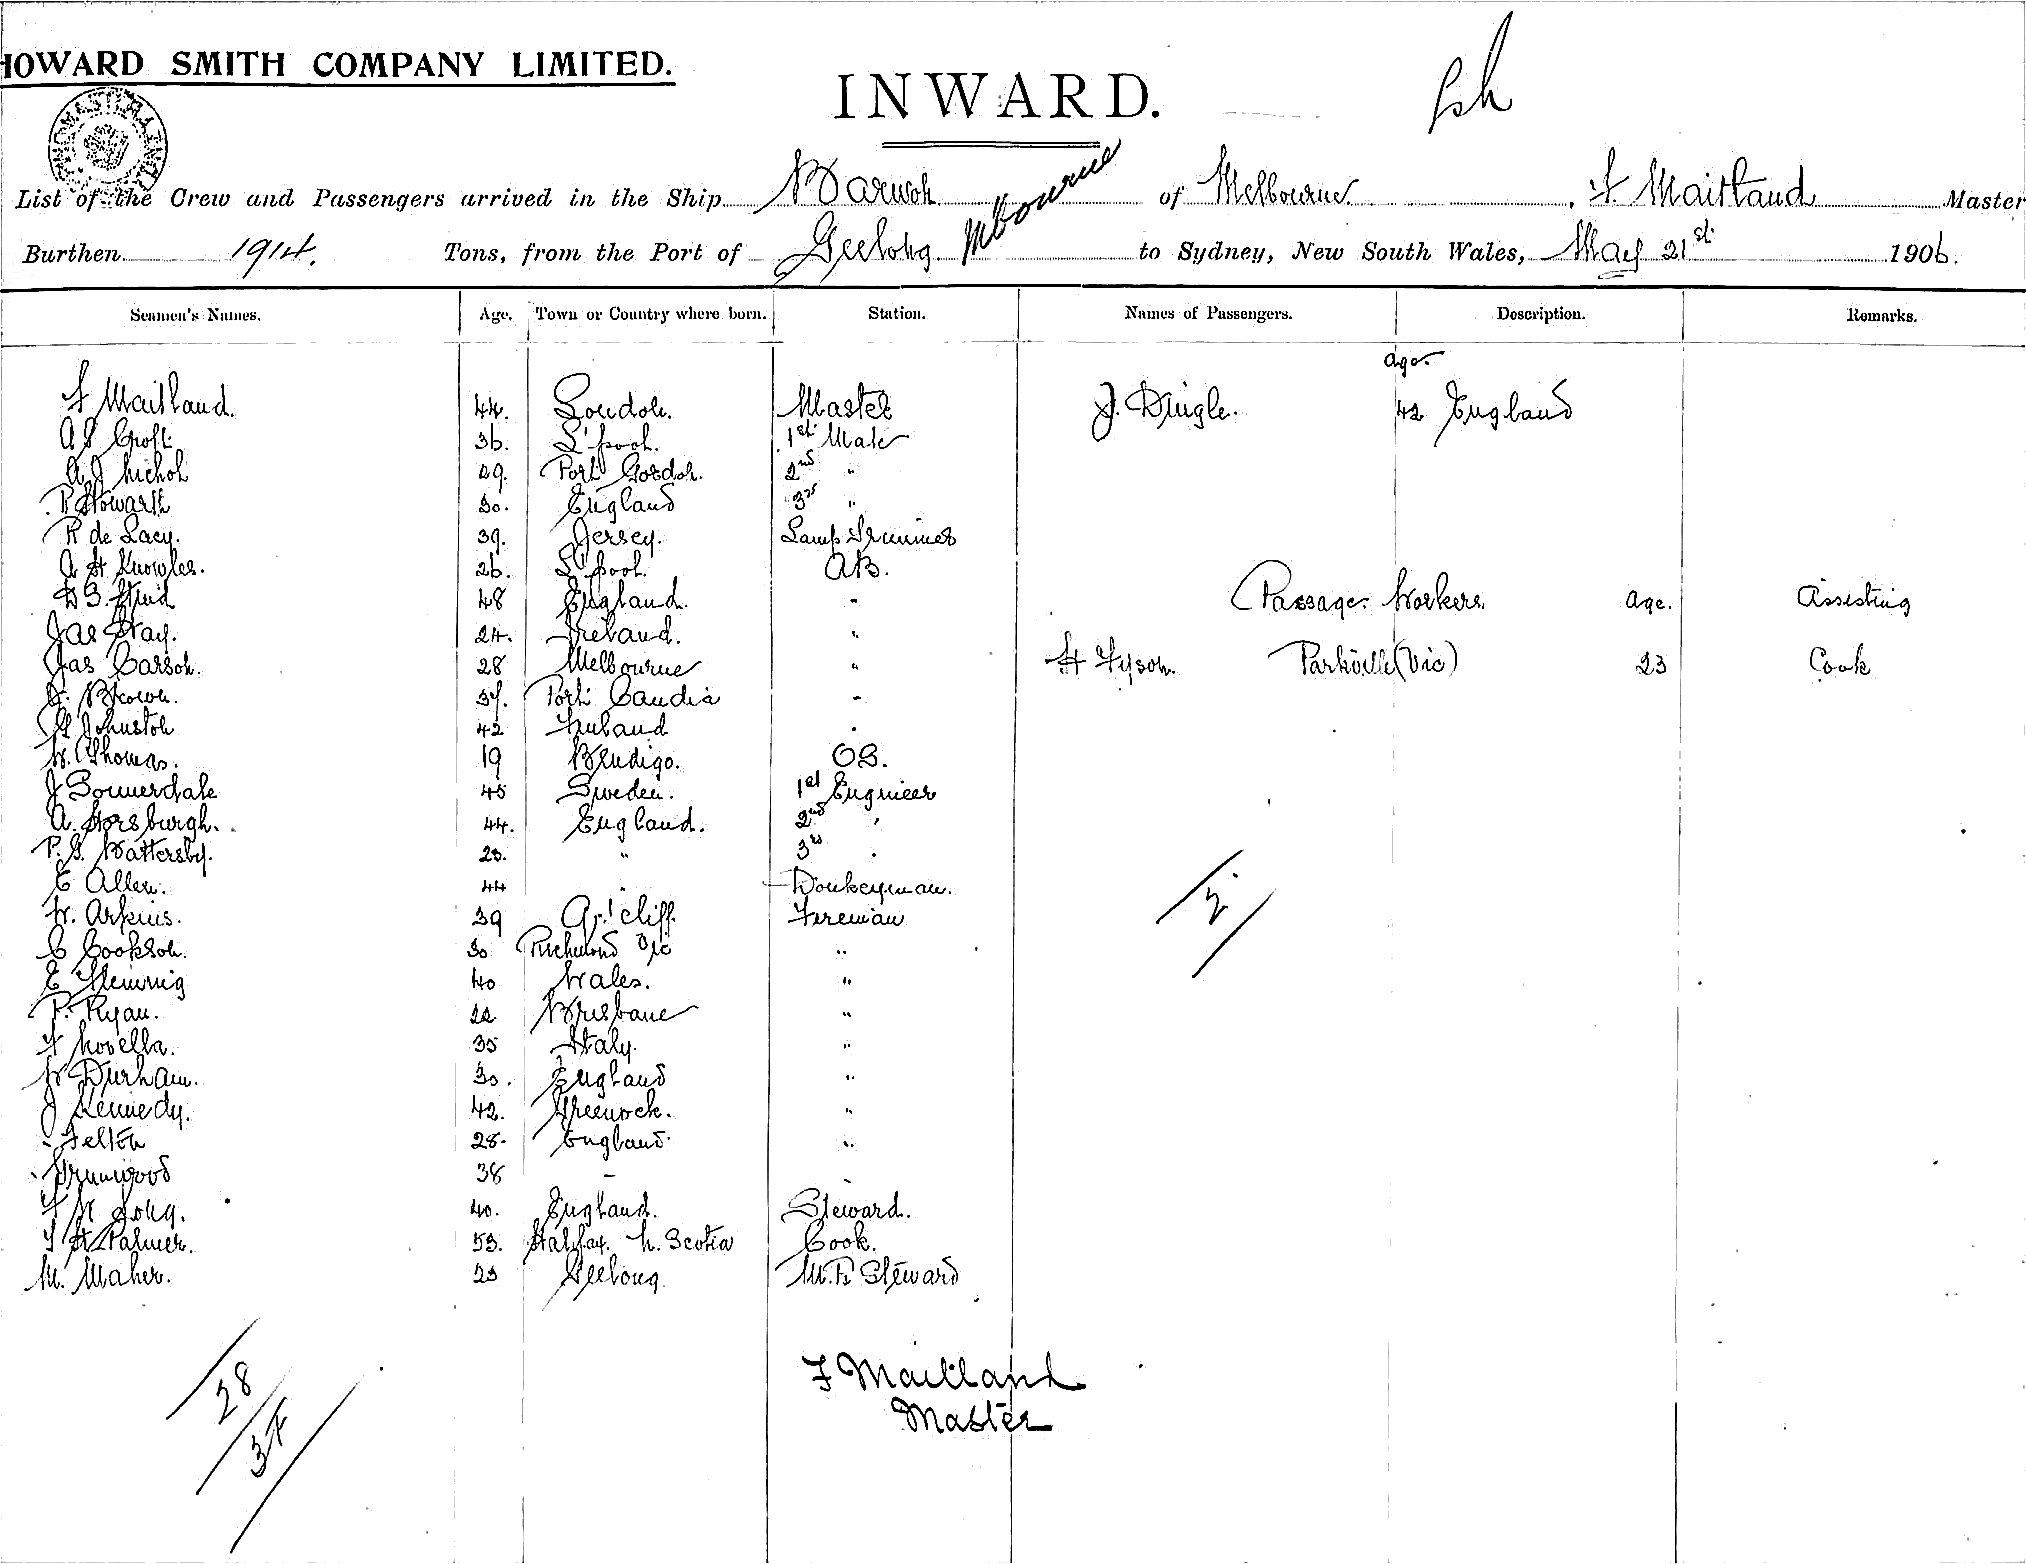 HOWARD SMITH COMPANY LIMITED.
INWARD.
List of the Crew and Passengers arrived in the Ship Barwon of Melbourne, F. Maitland Master
Burthen 1914. Tons, from the Port of Geelong Mbourne to Sydney, New South Wales, May 21st 1906.
Seamen's Names. Age. Town or Country where born. Station. Names of Passengers. Description. Remarks.
Age
F Maitland. 44. London. Master J. Dingle. 42 England
A S Croft 36. L'pool. 1st Mate
A J Nichol 29. Port Gordon. 2nd "
R Howarth 30. England 3rd "
R de Lacy. 39. Jersey. Lamp Trimmer
A H Knowles. 26. L'pool. AB.
48 England. " Passage Workers. age. Assisting
Jas Hay. 24. Ireland. "
Jas Carson. 28 Melbourne " H Tyson. Parkville (Vic) 23 Cook
J. Brown. 37. Port Candia "
Johnston 42 Ireland "
W. Thomas. 19 Bendigo. OS.
J Sonnerdale 45 Sweden. 1st Engineer
A. Horsburgh. 44. England. 2nd "
P. S. Battersby. 23. " 3rd "
E Allen. 44 " Donkeyman.
W. Arkins. 39 Ar'cliff Fireman
C Cookson. 30 Richmond Vic "
E Fleming 40 Wales. "
P. Ryan. 22 Brisbane "
F Novella. 35 Italy. "
W Durham. 30. England "
J Kennedy. 42. Greenock. "
- Felton 28. England "
- Grunwood 38 - -
F W Long. 40. England. Steward.
T H Palmer. 53. Halifax. N. Scotia Cook.
M. Maher. 23 Geelong M.R. Steward
2
28
37
F Maitland
Master